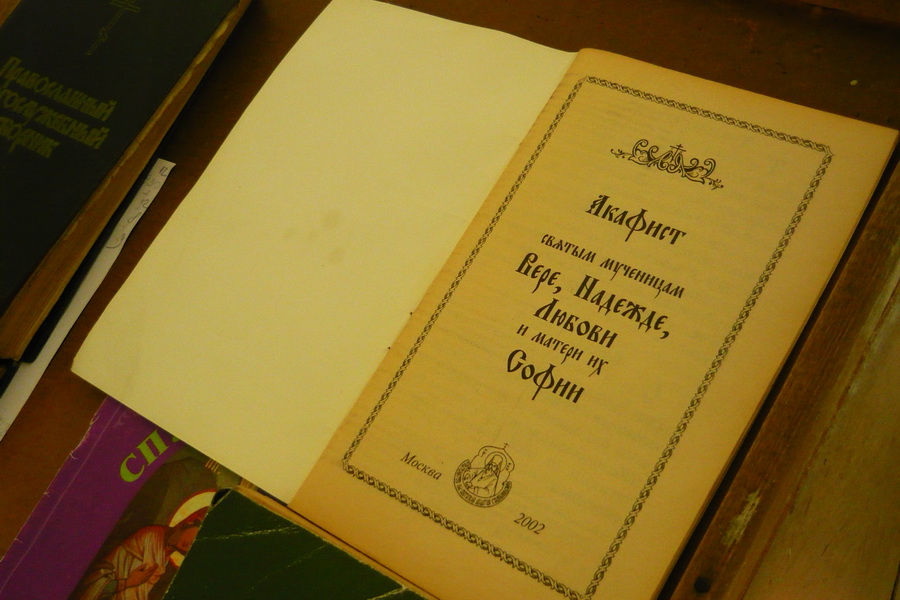 Православный
Богослужебный
сборник
Акафист
святым мученицам
Вере, Надежде,
Любови
и матери их
Софии
Москва
2002
СП